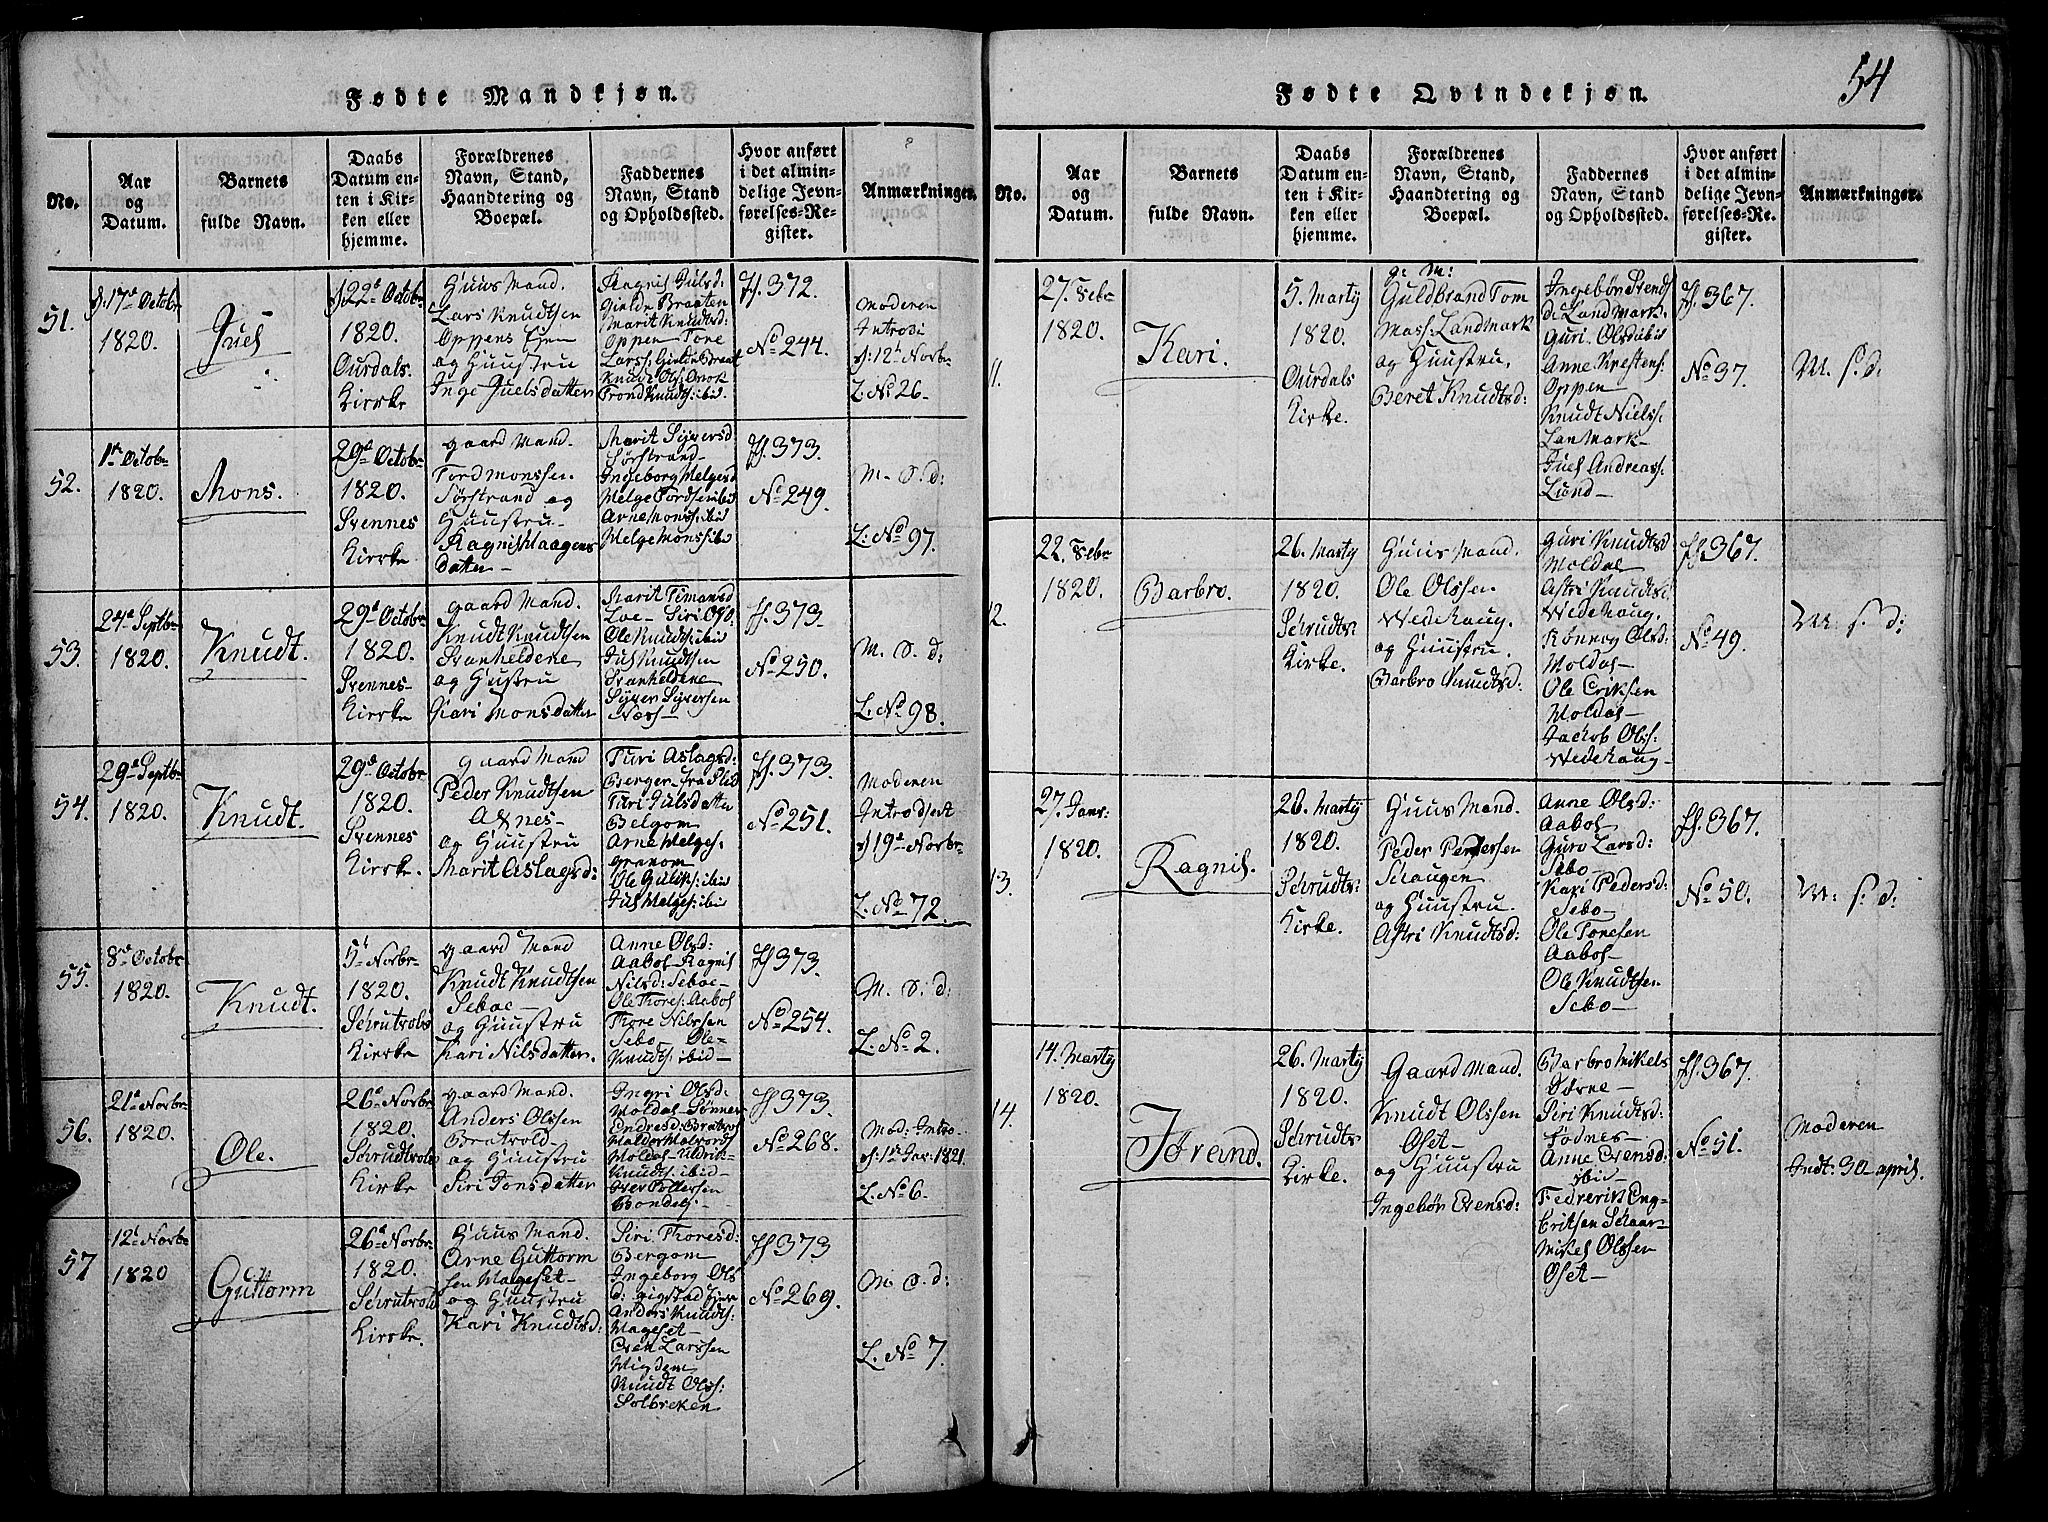 54
Fødte Mandkjøn.
No.
Aar
og
Datum.
Barnets
fulde Navn.
Daabs
Datum en-
ten i Kir-
ken eller
hjemme.
Forældrenes
Navn, Stand,
Haandtering og
Boepæl.
Faddernes
Navn, Stand
og Opholdssted.
Hvor anført
i det almin-
delige Jevn-
førelses-Re-
gister.
Anmærkninger.
51.
d: 17de Octobr
1820.
Juel
d 22de Octobr
1820.
Ourdals
Kirke
Huus Mand.
Lars Knudtsen
Oppens Ejen
og Huustru
Inge Juelsdatter
Ragnil Julsd:
Gielde Braaten
Marit Knudtsd:
Oppen Tore
Larss:
Knudt Olss:
Trond Knudtss: ibid
ff. 372.
No 244.
Moderen
Introd:
d: 12te Novbr
L. No 26.
52.
1ste Octobr
1820.
Mons.
29de Octobr
1820.
Svennes
Kirke
gaard Mand.
Tord Monssen.
Sørstrand og
Huustru
Ragnil Haagens
datter
Marit Syversd
Sørstrand
Ingeborg Helgesd
Helge Tordsen ibid
Arne Monss: ibid
Helge Monss: ibid
ff. 373.
No 249.
M. S. d:
L: No 97.
53.
24de Septbr
1820.
Knudt.
29de Octobr
1820.
Svennes
Kirke
gaard Mand.
Knudt Knudtsen
Svanheldene
og Hustru
Kari Monsdatter
Marit Timansd
Loe Siri Olsd.
Ole Knudts: ibid
Jul Knudtsen
Svanheldene
Syver Syversen
Næss
ff. 373
No 250.
M. S. d:
L. No 98.
54.
29de Septbr
1820.
Knudt.
29de Octobr
1820.
Svennes
Kirke.
gaard Mand
Peder Knudtsen
Axnes
og Huustru
Marit Aslagsd:
Turi Aslagsd:
Berger fra Slid
Turi Julsdatter
Belgom
Arne Helges:
granom
Ole Guliks: ibid
Jul Helges: ibid
ff. 373.
No 251.
Moderen
Introdsert
d 19de Novbr
L. No 72.
55.
8de Octobr
1820.
Knudt.
5te Novbr
1820.
Schrutvols
Kirke
gaard Mand
Knudt Knudtsen
Seboe
og Huustru
Kari Nilsdatter.
Anne Olsd:
Aabol Ragnil
Nilsd: Seboe
Ole Thores: Aabol
Thore Nilssen
Sebo Ole
Knudts: ibid
ff 373.
No 254.
M. S. d:
L. No 2.
56.
21de Novbr
1820.
Ole.
26de Novbr
1820.
Schrudtvols
Kirke
gaard Mand.
Anders Olssen
Bratvold
og Huustru
Siri Tonsdatter
Ingri Olsd:
Moldal Rønnev
Endresd: Bratvol
Haldor Halvords
Moldal Uldrik
Knudts: ibid
Iver Pettersen
Bondelj
ff 373
No 268.
Mod: Intro
d: 1ste Jar: 1821.
L. No 6.
57
12te Novbr
1820
Guttorm
26de Novbr
1820.
Schrutvols
Kirke.
Huus Mand.
Arne Guttorm
sen Mageset
og Huustru
Kari Knudtsd:
Siri Thoresd:
Bergom
Ingeborg Ols
d: gigstad Ejer
Anders Knudts:
Mageset
Even Larssen
Migdem
Knudt Olss:
Solbreken
ff 373
No 269.
M S. d:
L. No 7.
Fødte Qvindekjøn.
No.
Aar
og
Datum.
Barnets
fulde Navn.
Daabs
Datum en-
ten i Kir-
ken eller
hjemme.
Forældrenes
Navn, Stand,
Haandtering og
Boepæl.
Faddernes
Navn, Stand
og Opholdssted.
Hvor anført
i det almin-
delige Jevn-
førelses-Re-
gister.
Anmærkninger.
11.
27. Febr
1820.
Kari.
5. Marty
1820.
Ourdals
Kirke.
g: M:
Guldbrand Tom
mass: Landmark
og Huustru,
Beret Knudtsd:
Ingebør Svends
d: Landmark
Guri Olsd ibid
Anne Krestens:
Oppen
Knudt Niels:
Lanmark
Juel Andreass:
Lund
ff. 367.
No 37.
M. S. d.
12.
22. Febr
1820.
Barbro.
26. Marty
1820.
Schrudts
Kirke.
Huus Mand.
Ole Olssen.
Wedehaug.
og Huustru.
Barbro Knudtsd:
Guri Knudtsd
Moldal
Astri Knudtsd:
Wedehaug.
Rønnog Olsd:
Moldal
Ole Eriksen
Moldal
Jackob Ols:
Wedehaug
ff. 367.
No 49.
M. S. d:
13.
27. Janr:
1820.
Ragnil.
26. Marty
1820.
Schrudts
Kirke.
Huus Mand.
Peder Pedersen
Schaugen
og Huustru.
Astri Knudtsd:
Anne Olsd:
Aabol
Guro Larsd:
Sebo
Kari Pedersd:
Sebo
Ole Toresen
Aabol
Ole Knudtsen
Sebo
ff. 367.
No 50.
M: S. d:
14.
14. Marty
1820.
Jørand.
26. Marty
1820.
Schrudts
Kirke.
Gaard Mand.
Knudt Olssen
Øset
og Huustru
Ingebør Evensd:
Barbro Mikels
Siri Knudtsd:
Fødnes
Anne Evensd:
ibid
Eritsen Schaar
Mikel Olssen
Øset
ff. 367.
No 51.
Moderen
Indt: 30 april.